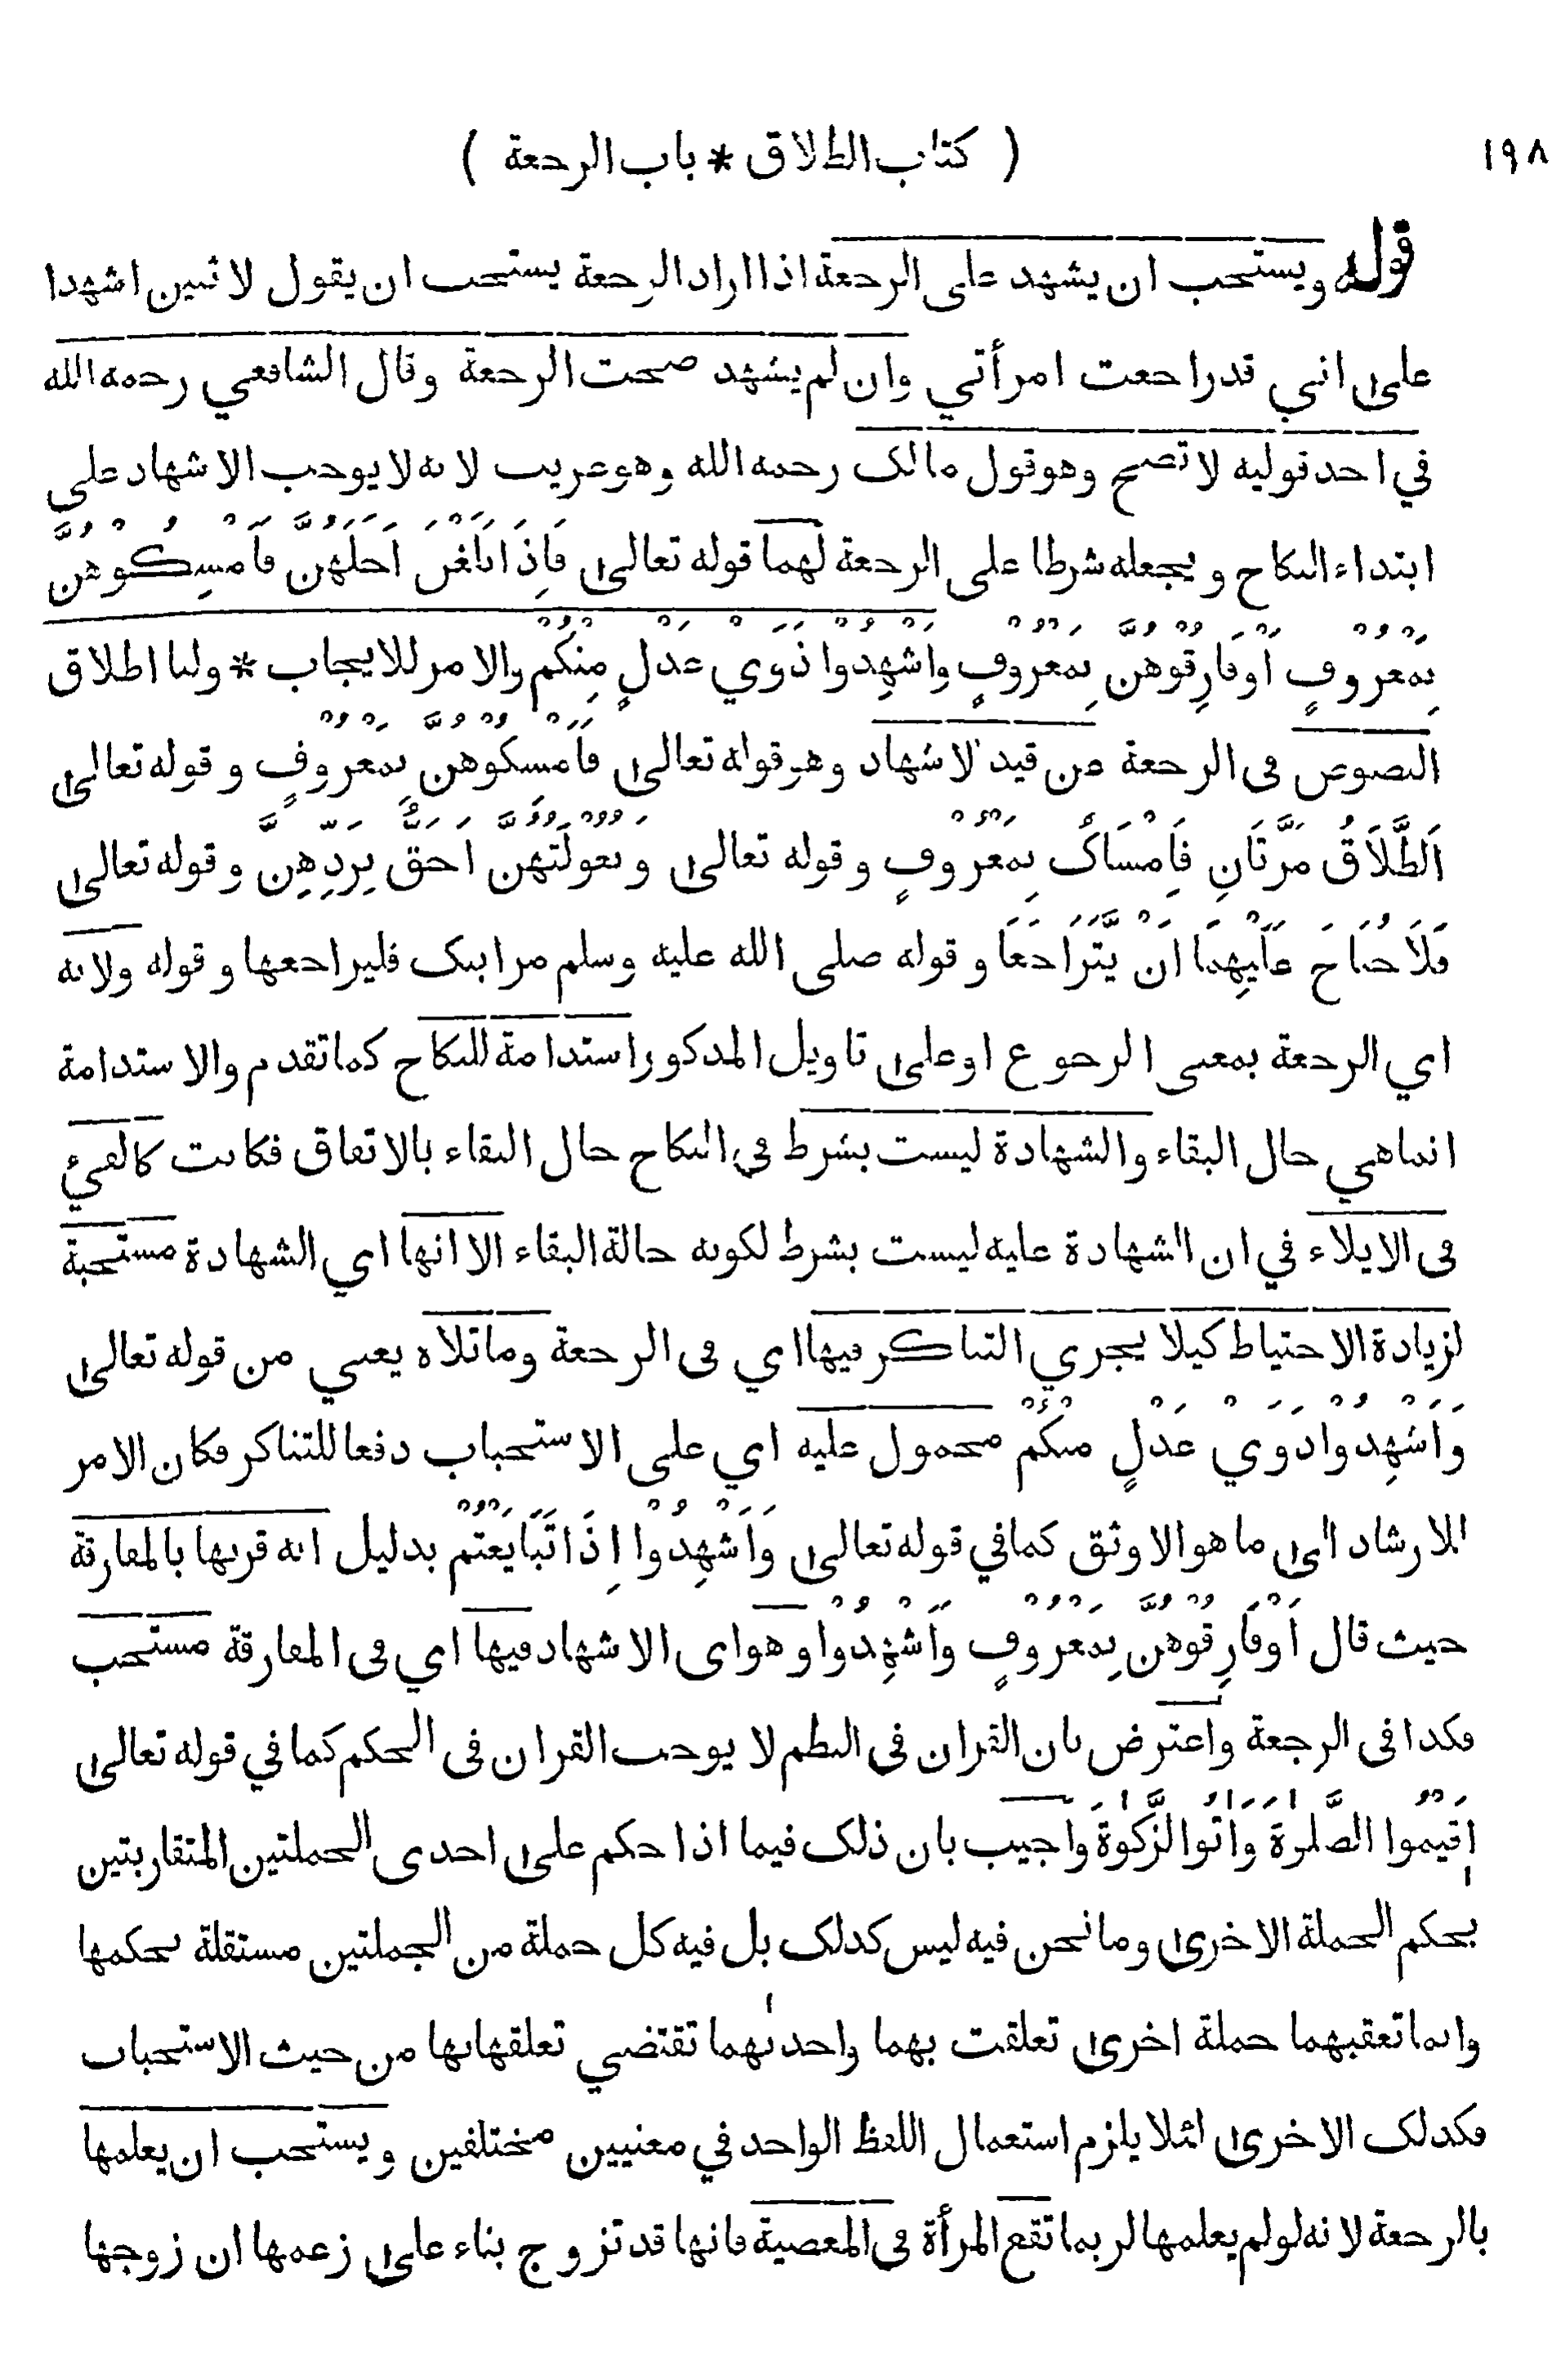 ١٩٨ ( كتاب الطلاق * باب الرجعة )
قوله ويستحب ان يشهد على الرجعة اذا اراد الرجعة يستحب ان يقول لاثنين اشهدا
على اني قد راجعت امرأتي وان لم يشهد صحت الرجعة وقال الشافعي رحمه الله
في احد قوليه لا تصح وهو قول مالك رحمه الله وهو غريب لانه لا يوجب الاشهاد على
ابتداء النكاح ويجعله شرطا على الرجعة لهما قوله تعالى فَاِذَا بَلَغْنَ اَجَلَهُنَّ فَاَمْسِكُوْهُنَّ
بِمَعْرُوْفٍ اَوْ فَارِقُوْهُنَّ بِمَعْرُوْفٍ وَاَشْهِدُوْا ذَوَيْ عَدْلٍ مِنْكُمْ والامر للايجاب * ولنا اطلاق
النصوص في الرجعة عن قيد الاشهاد وهو قوله تعالى فَاَمْسِكُوْهُنَّ بِمَعْرُوْفٍ وقوله تعالى
اَلطَّلَاقُ مَرَّتَانِ فَاِمْسَاكٌ بِمَعْرُوْفٍ وقوله تعالى وَبُعُوْلَتُهُنَّ اَحَقُّ بِرَدِّهِنَّ وقوله تعالى
فَلَا جُنَاحَ عَلَيْهِمَا اَنْ يَّتَرَاجَعَا وقوله صلى الله عليه وسلم مر ابنك فليراجعها وقوله ولانه
اي الرجعة بمعنى الرجوع او على تاويل المذكور استدامة للنكاح كما تقدم والاستدامة
انما هي حال البقاء والشهادة ليست بشرط في النكاح حال البقاء بالاتفاق فكانت كالفيء
في الايلاء في ان الشهادة عليه ليست بشرط لكونه حالة البقاء الا انها اي الشهادة مستحبة
لزيادة الاحتياط كيلا يجري التناكر فيها اي في الرجعة وما تلاه يعني من قوله تعالى
وَاَشْهِدُوْا ذَوَيْ عَدْلٍ مِنْكُمْ محمول عليه اي على الاستحباب دفعا للتناكر فكان الامر
للارشاد الى ما هو الاوثق كما في قوله تعالى وَاَشْهِدُوْا اِذَا تَبَايَعْتُمْ بدليل انه قرنها بالمفارقة
حيث قال اَوْ فَارِقُوْهُنَّ بِمَعْرُوْفٍ وَاَشْهِدُوْا وهو اى الاشهاد فيها اي في المفارقة مستحب
فكذا في الرجعة واعترض بان القران في النظم لا يوجب القران في الحكم كما في قوله تعالى
اَقِيْمُوا الصَّلٰوةَ وَاٰتُوا الزَّكٰوةَ واجيب بان ذلك فيما اذا حكم على احدى الجملتين المتقاربتين
بحكم الجملة الاخرى وما نحن فيه ليس كذلك بل فيه كل جملة من الجملتين مستقلة بحكمها
وانما تعقبهما جملة اخرى تعلقت بهما واحدٰهما تقتضي تعلقها بها من حيث الاستحباب
فكذلك الاخرى لئلا يلزم استعمال اللفظ الواحد في معنيين مختلفين ويستحب ان يعلمها
بالرجعة لانه لو لم يعلمها لربما تقع المرأة في المعصية فانها قد تزوج بناء على زعمها ان زوجها